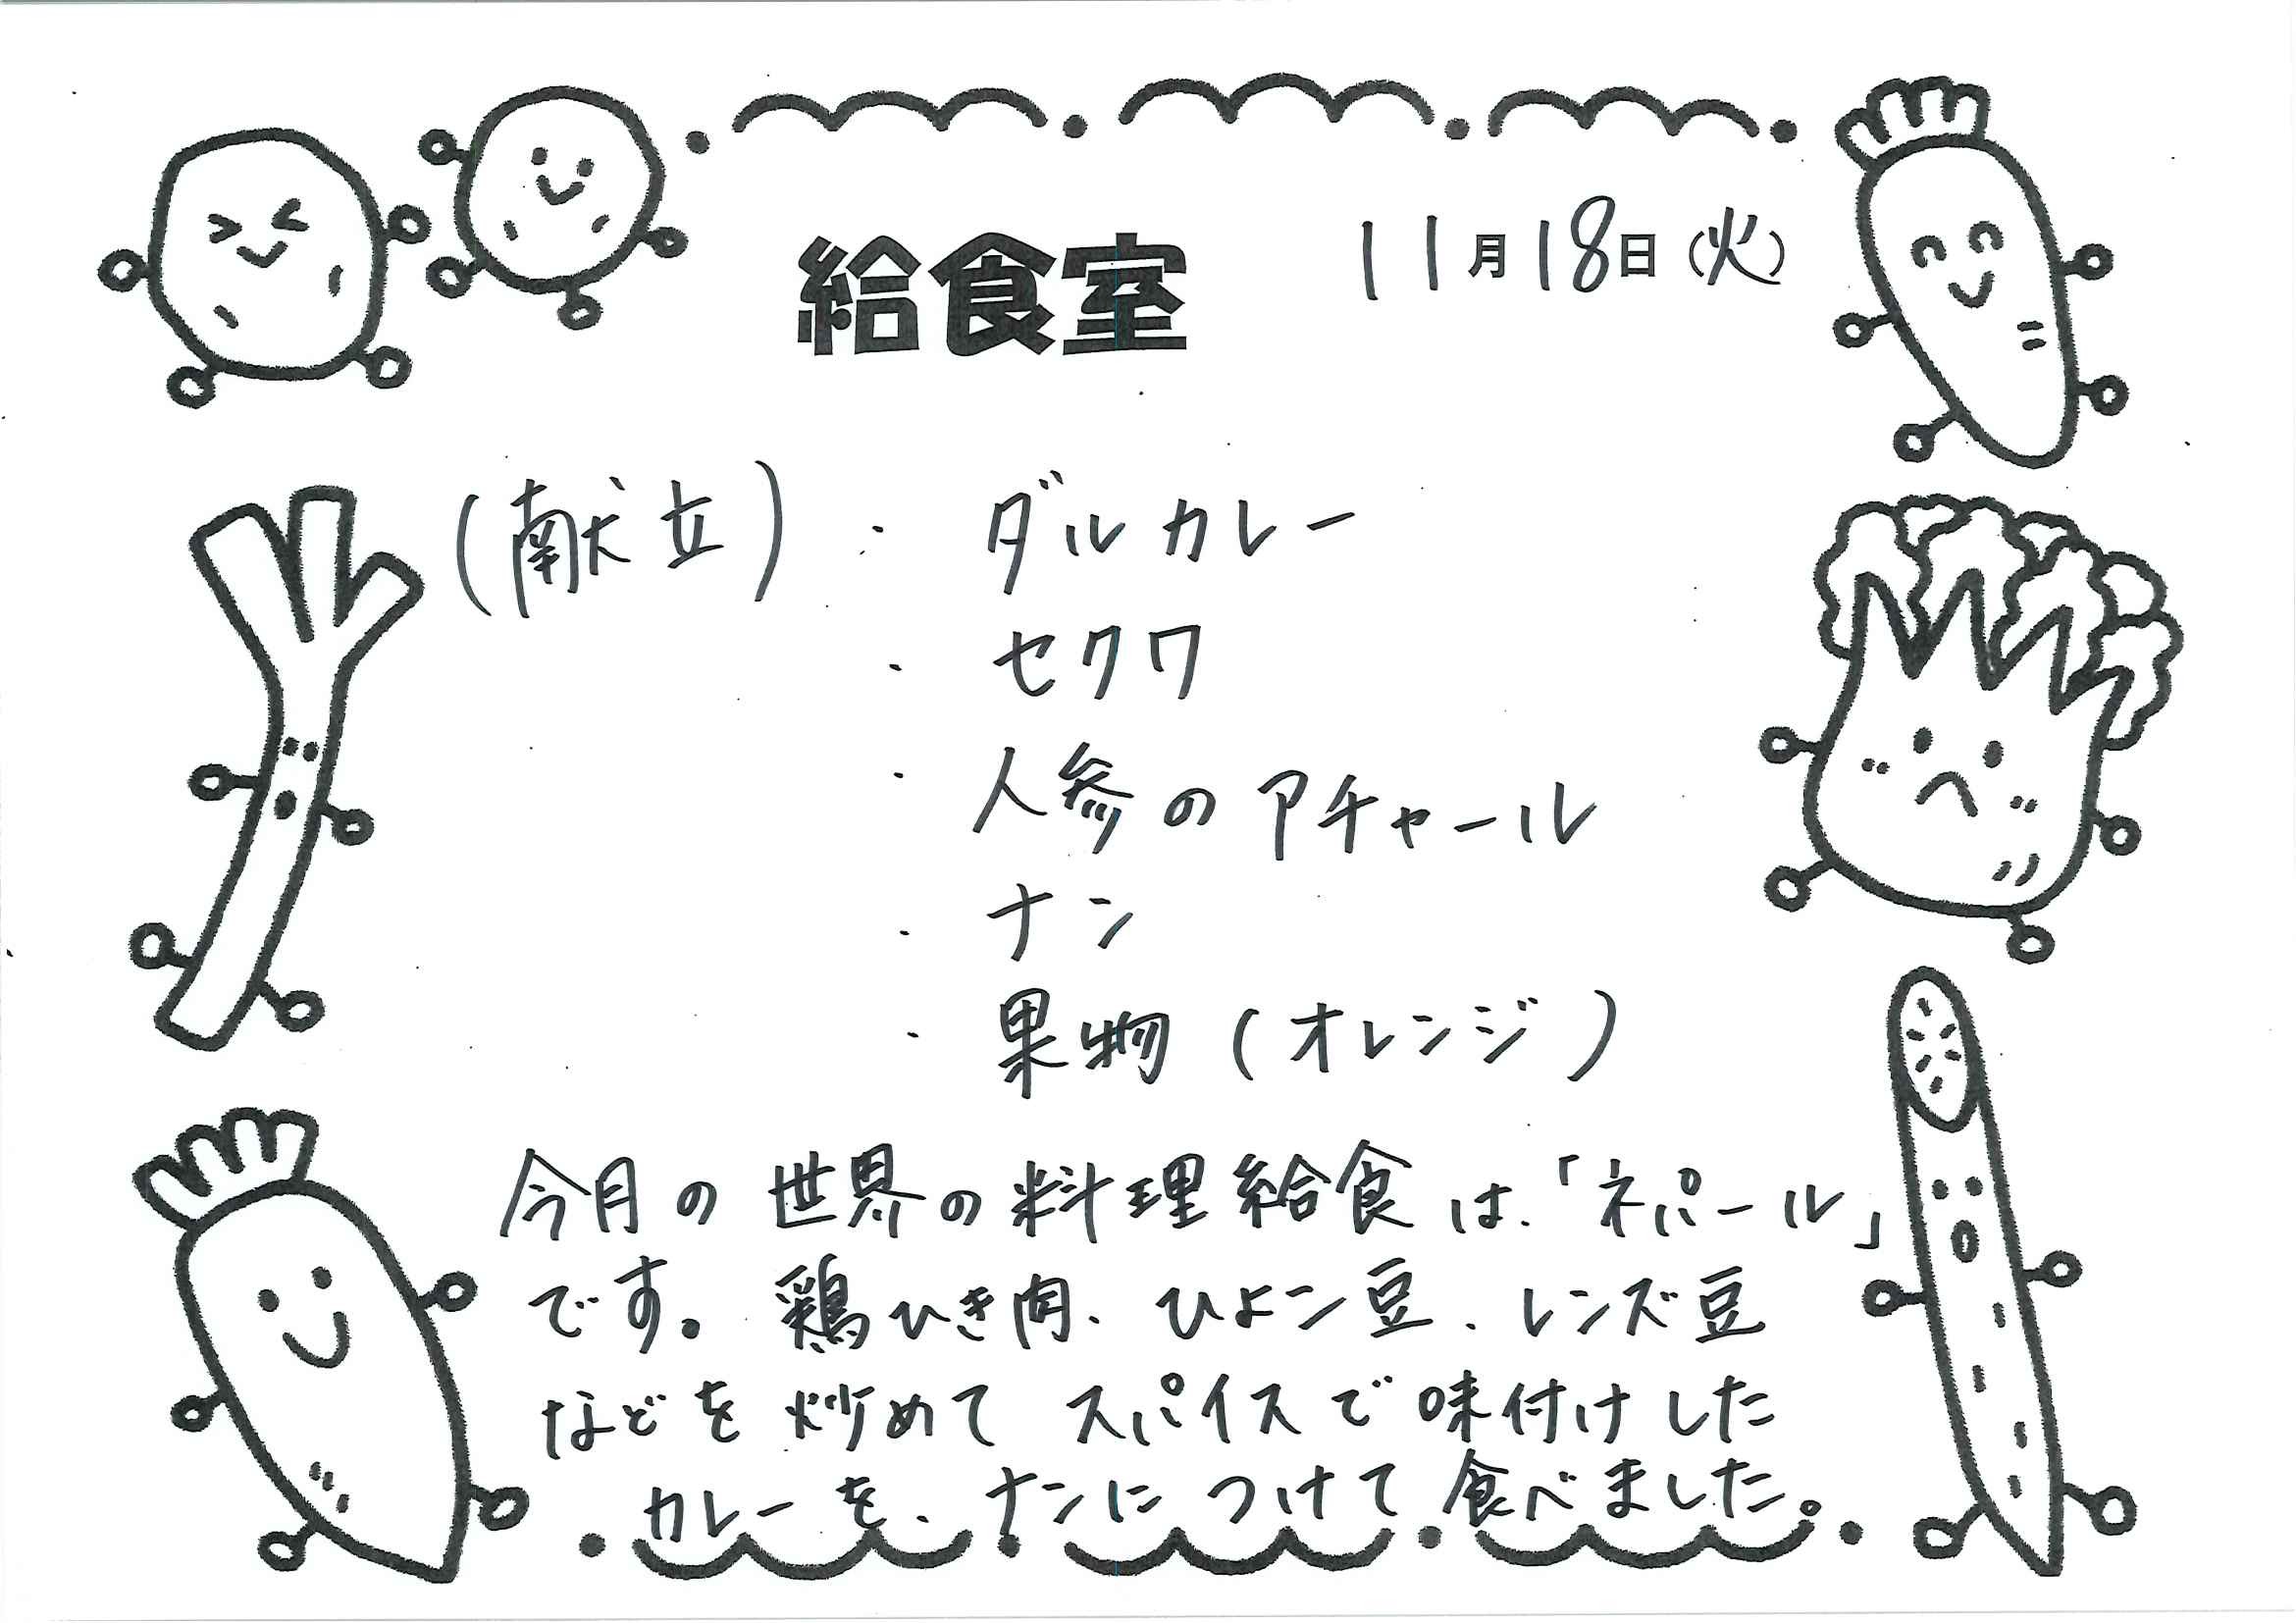 給食室
11月18日(火)
(献立)・ダルカレー
・セクワ
・人参のアチャール
・ナン
・果物(オレンジ)
今月の世界の料理給食は、「ネパール」
です。鶏ひき肉、ひよこ豆、レンズ豆
などを炒めてスパイスで味付けした
カレーを、ナンにつけて食べました。